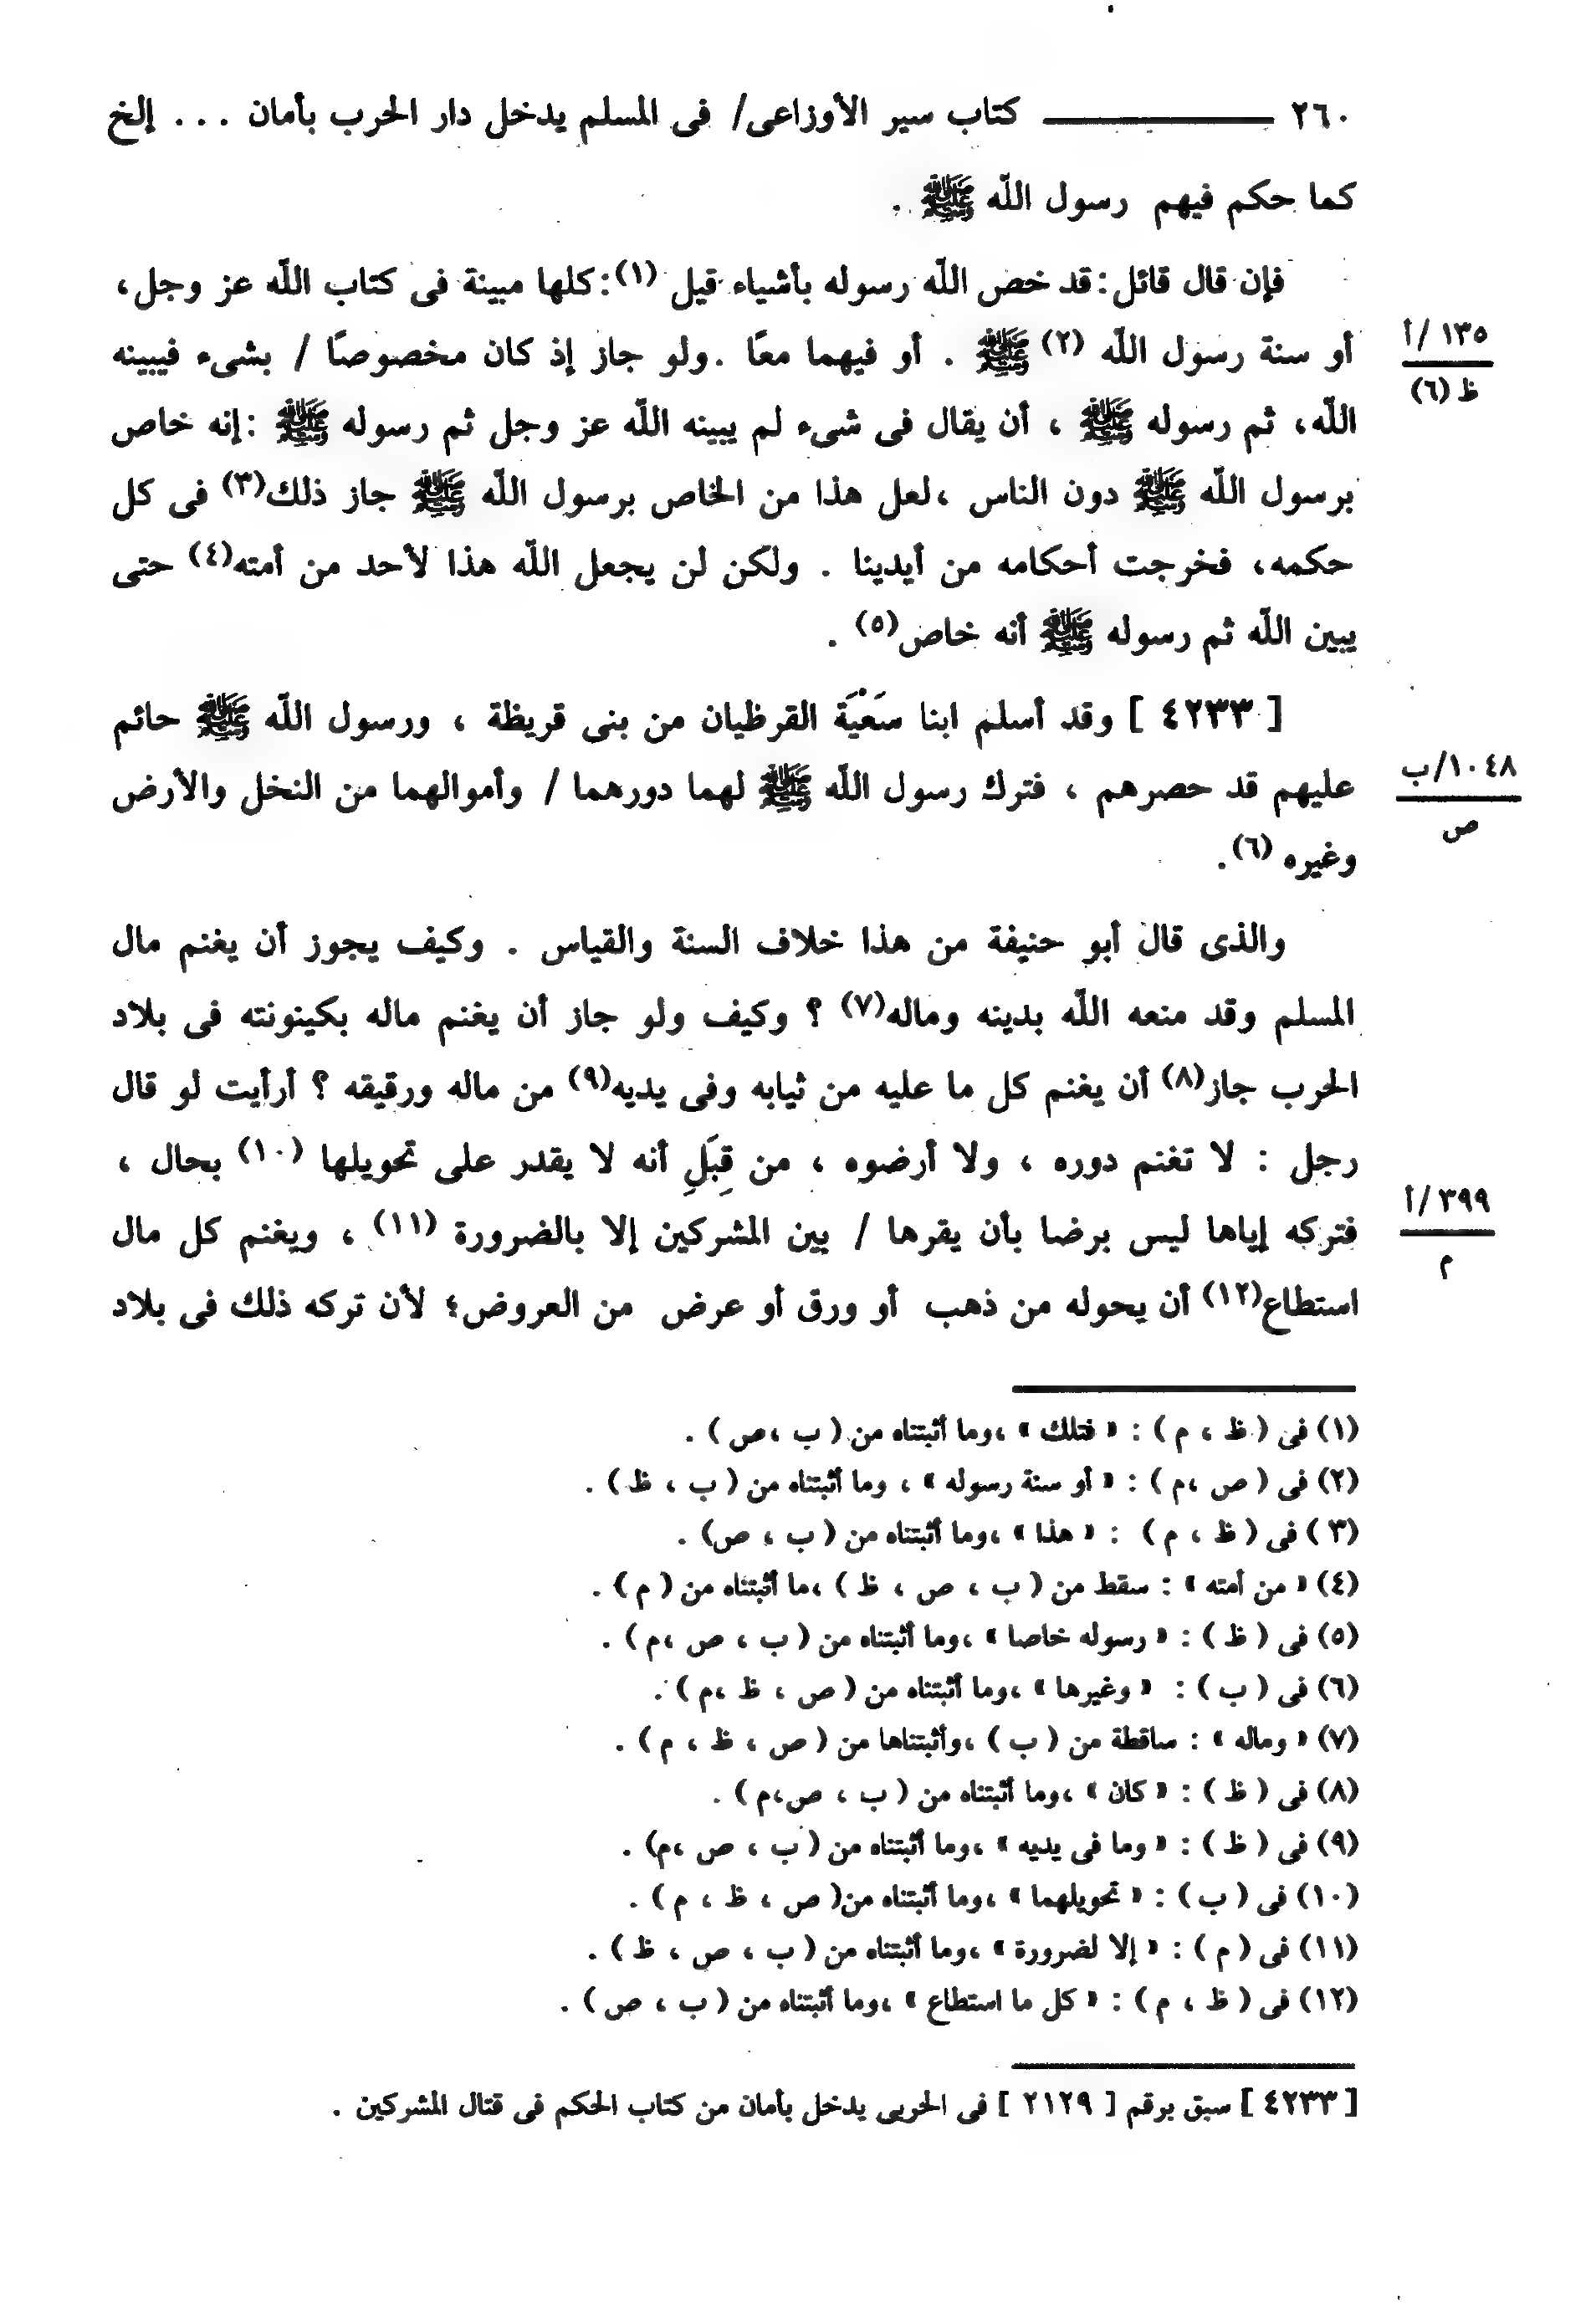 ٢٦٠ كتاب سير الأوزاعى/ فى المسلم يدخل دار الحرب بأمان . . . إلخ
كما حكم فيهم رسول اللّه ﷺ .
فإن قال قائل: قد خص اللّه رسوله بأشياء قيل (١): كلها مبينة فى كتاب اللّه عز وجل،
أو سنة رسول اللّه (٢) ﷺ . أو فيهما معًا . ولو جاز إذ كان مخصوصًا / بشىء فيبينه
١٣٥/أ
ظ (٦)
اللّه، ثم رسوله ﷺ ، أن يقال فى شىء لم يبينه اللّه عز وجل ثم رسوله ﷺ :إنه خاص
برسول اللّه ﷺ دون الناس ،لعل هذا من الخاص برسول اللّه ﷺ جاز ذلك(٣) فى كل
حكمه، فخرجت أحكامه من أيدينا . ولكن لن يجعل اللّه هذا لأحد من أمته(٤) حتى
يبين اللّه ثم رسوله ﷺ أنه خاص(٥) .
[ ٤٢٣٣ ] وقد أسلم ابنا سَعْيَة القرظيان من بنى قريظة ، ورسول اللّه ﷺ حائم
عليهم قد حصرهم ، فترك رسول اللّه ﷺ لهما دورهما / وأموالهما من النخل والأرض
١٠٤٨/ب
ص
وغيره (٦).
والذى قال أبو حنيفة من هذا خلاف السنة والقياس . وكيف يجوز أن يغنم مال
المسلم وقد منعه اللّه بدينه وماله(٧) ؟ وكيف ولو جاز أن يغنم ماله بكينونته فى بلاد
الحرب جاز(٨) أن يغنم كل ما عليه من ثيابه وفى يديه(٩) من ماله ورقيقه ؟ أرأيت لو قال
رجل : لا تغنم دوره ، ولا أرضوه ، من قِبَلِ أنه لا يقدر على تحويلها (١٠) بحال ،
فتركه إياها ليس برضا بأن يقرها / بين المشركين إلا بالضرورة (١١) ، ويغنم كل مال
٣٩٩/أ
م
استطاع(١٢) أن يحوله من ذهب أو ورق أو عرض من العروض؛ لأن تركه ذلك فى بلاد
(١) فى ( ظ ، م ) : « فتلك » ،وما أثبتناه من ( ب ،ص ) .
(٢) فى ( ص ،م ) : « أو سنة رسوله » ، وما أثبتناه من ( ب ، ظ ) .
(٣ ) فى ( ظ ، م ) : « هذا » ،وما أثبتناه من ( ب ، ص) .
(٤) « من أمته » : سقط من ( ب ، ص ، ظ ) ،ما أثبتناه من ( م ) .
(٥) فى ( ظ ) : « رسوله خاصا » ،وما أثبتناه من ( ب ، ص ،م ) .
(٦) فى ( ب ) : « وغيرها » ،وما أثبتناه من ( ص ، ظ ،م ) .
(٧) « وماله » : ساقطة من ( ب ) ،وأثبتناها من ( ص ، ظ ، م ) .
(٨) فى ( ظ ) : « كان » ،وما أثبتناه من ( ب ، ص،م ) .
(٩) فى ( ظ ) : « وما فى يديه » ،وما أثبتناه من ( ب ، ص ،م) .
(١٠) فى ( ب ) : « تحويلهما » ،وما أثبتناه من( ص ، ظ ، م ) .
(١١) فى ( م ) : « إلا لضرورة » ،وما أثبتناه من ( ب ، ص ، ظ ) .
(١٢) فى ( ظ ، م ) : « كل ما استطاع » ،وما أثبتناه من ( ب ، ص ) .
[ ٤٢٣٣ ] سبق برقم [ ٢١٢٩ ] فى الحربى يدخل بأمان من كتاب الحكم فى قتال المشركين .